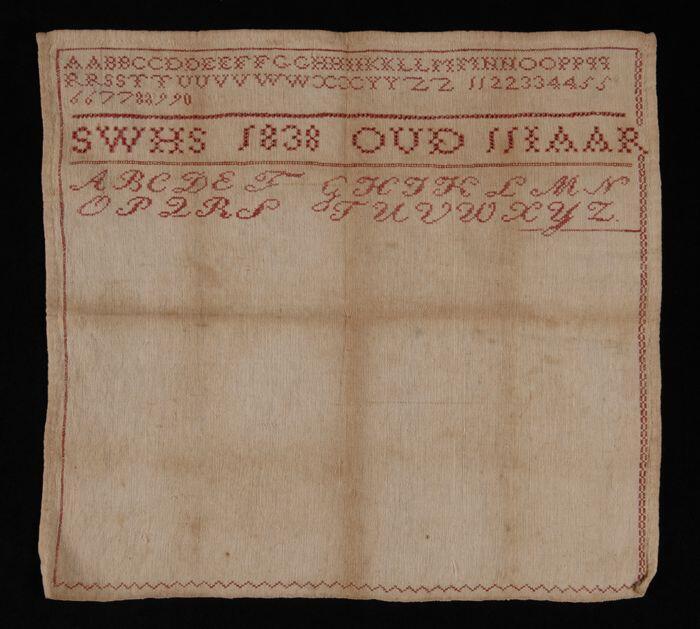 AABBCCDDEEFFGGHHIIKKLLMMNNOOPPqq
RRSSTTUUVVWWXXYYZZ 1122334455
6677889990
SWHS 1838 OUD 11 IAAR
ABCDEF GHIKLMN
OPQRS TUVWXYZ.